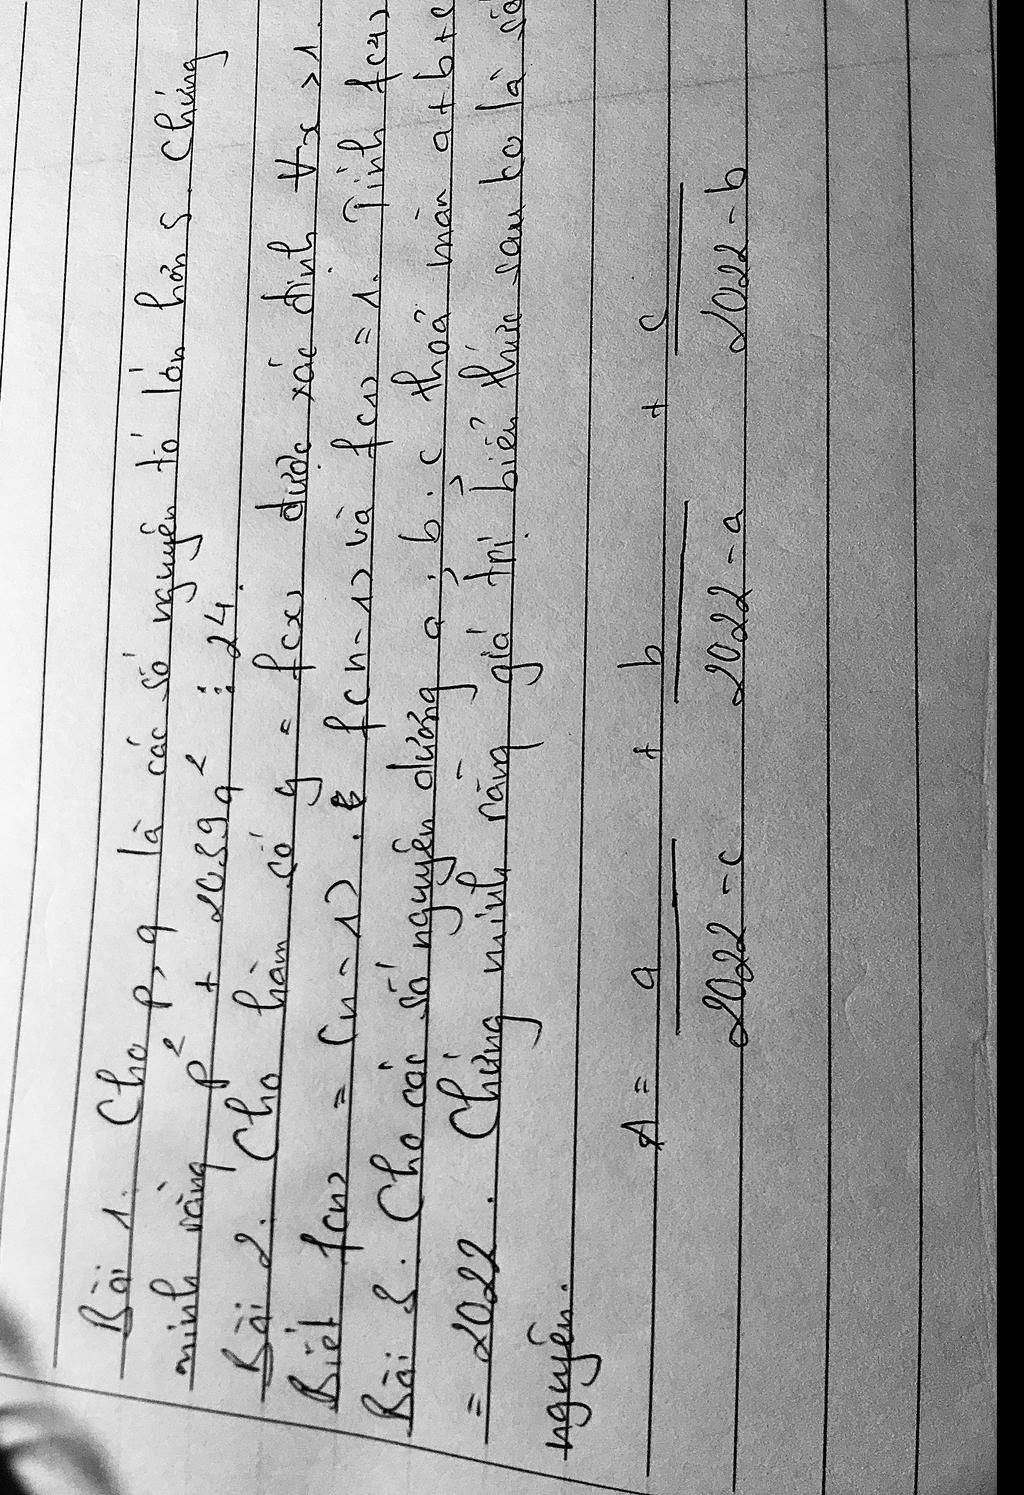 Bài 1. Cho p, q là các số nguyên tố lớn hơn 5. Chứng
minh rằng p² + 2039q² ⋮ 24.
Bài 2. Cho hàm số y = f(x) được xác định ∀x ≥ 1.
Biết f(n) = (n-1). f(n-1) và f(1) = 1. Tính f(4)
Bài 3. Cho các số nguyên dương a, b, c thoả mãn a+b+c
= 2022. Chứng minh rằng giá trị biểu thức sau ko là số
nguyên.
A = a + b + c
2022-c 2022-a 2022-b